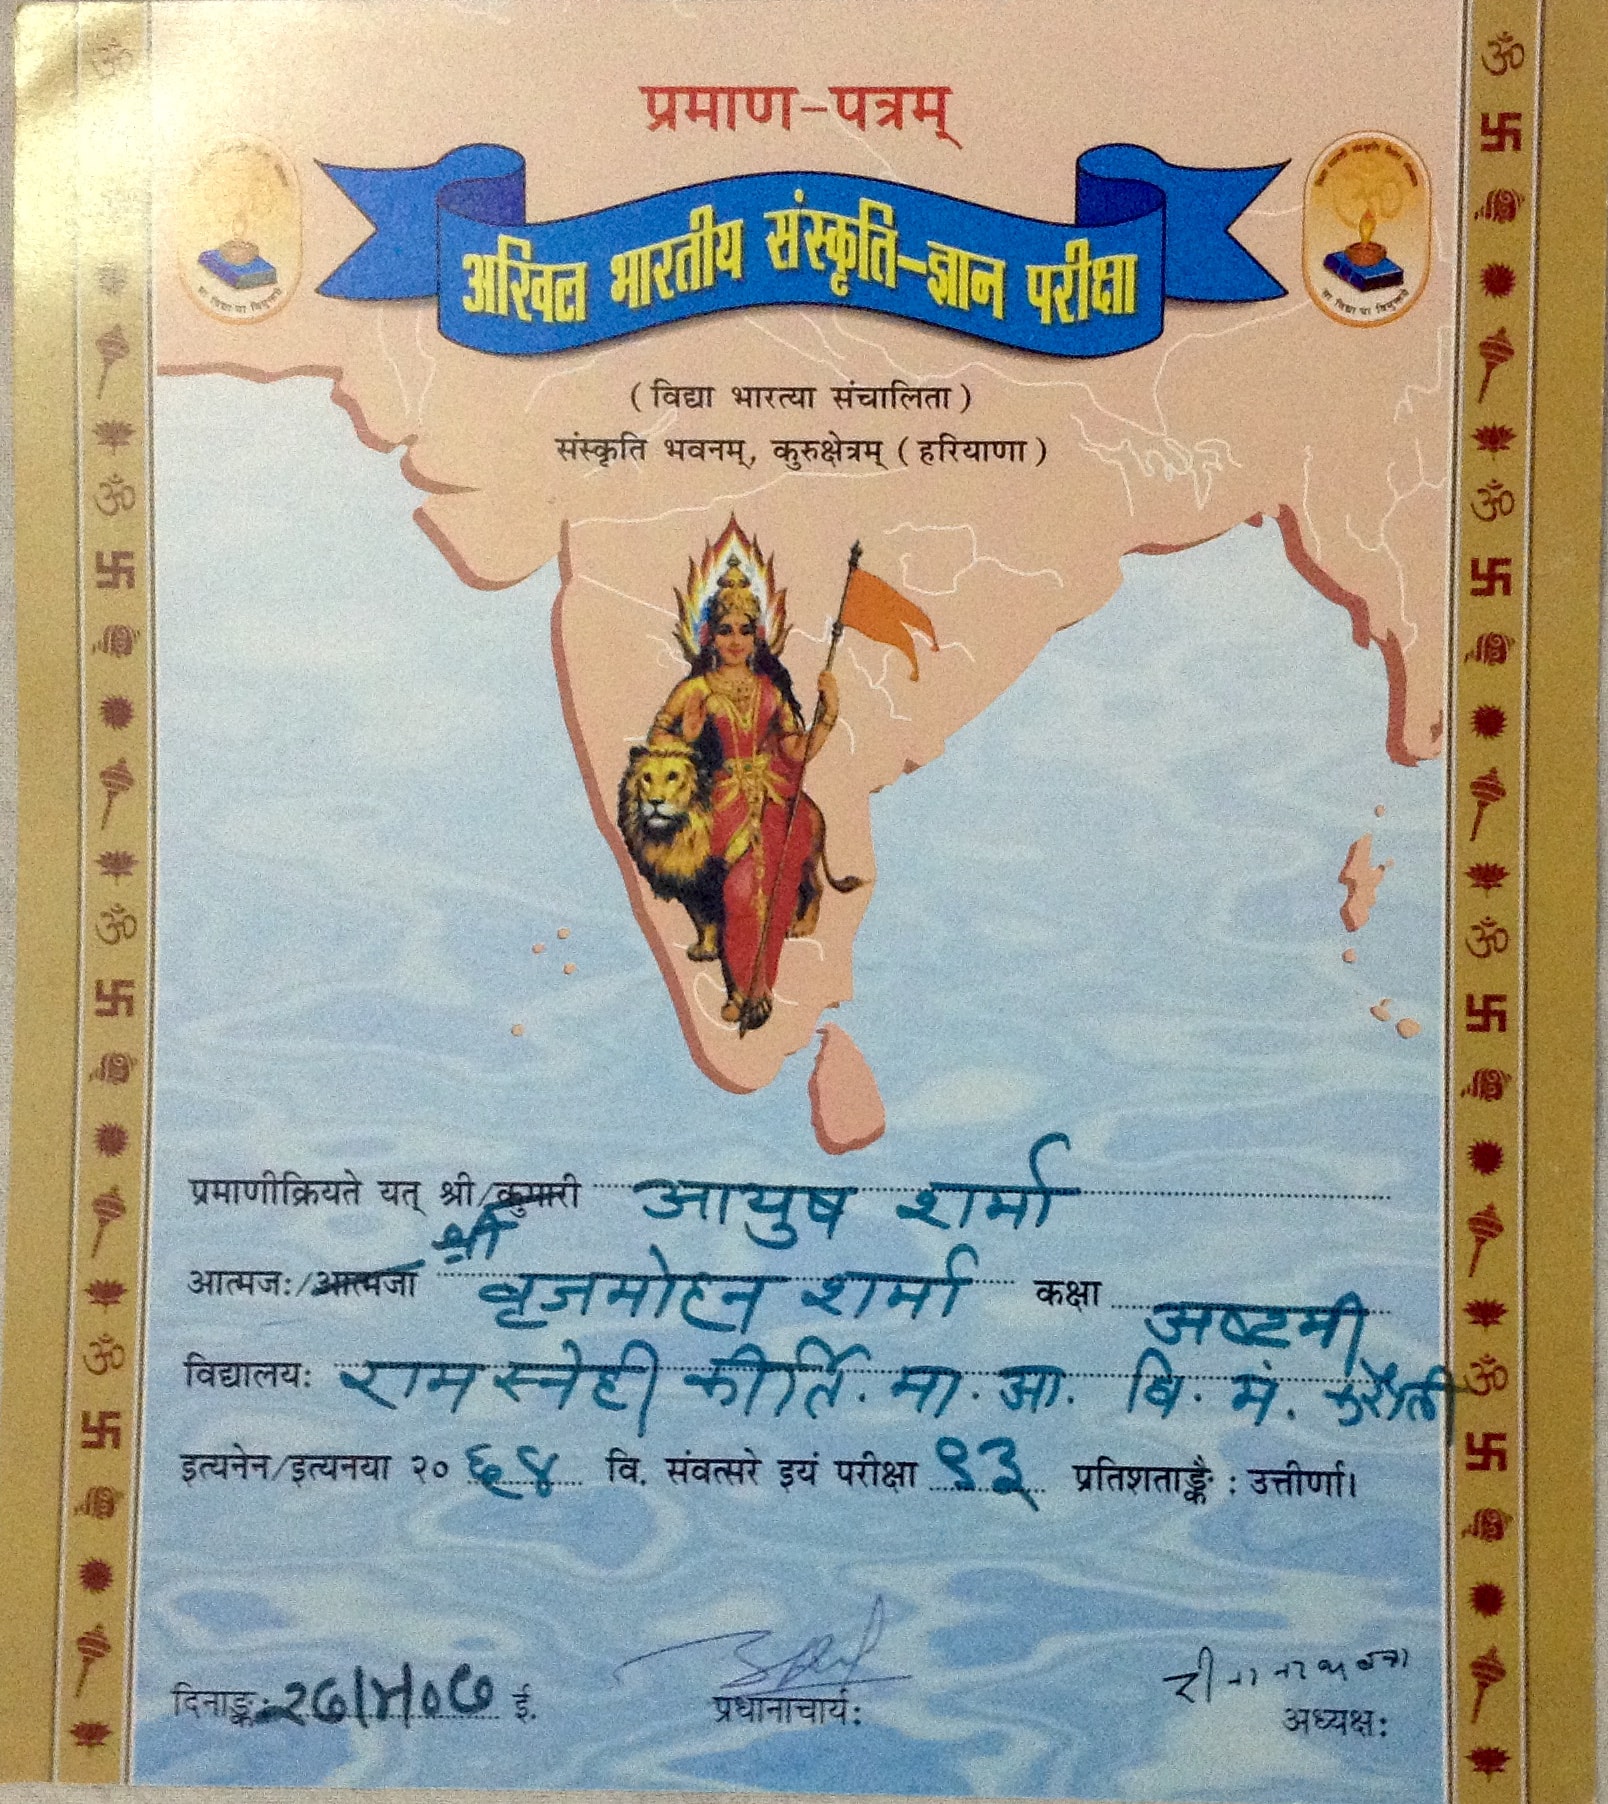 प्रमाण-पत्रम्
अखिल भारतीय संस्कृति-ज्ञान परीक्षा
( विद्या भारत्या संचालिता )
संस्कृति भवनम्, कुरुक्षेत्रम् ( हरियाणा )
प्रमाणीक्रियते यत् श्री/कुमारी आयुष शर्मा
आत्मजः/आत्मजा श्री वृजमोहन शर्मा कक्षा अष्टमी
विद्यालयः रामस्नेही कीर्ति. मा. आ. वि. मं.
इत्यनेन/इत्यनया २०६४ वि. संवत्सरे इयं परीक्षा ९३ प्रतिशताङ्कैः उत्तीर्णा।
दिनाङ्कः २७/५/०७ ई.
प्रधानाचार्यः
अध्यक्षः